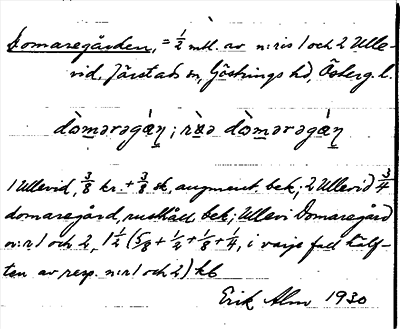 Domaregården, = 1/2 mtl. av n:ris 1 och 2 Ulle-
vid, Järstads sn, Göstrings hd, Österg. l.
dòmərəgáŋ; dòmərəgáŋ
1 Ullevid, 3/8 kr. + 3/8 sk. augment. bek.; 2 Ullevid 3/4
domaregård, rusthåll bek.; Ullevi Domaregård
n:r 1 och 2, 1 1/2 (5/8 + 1/2 + 1/8 + 1/4, i varje fall hälf-
ten av resp. n:r 1 och 2)
Erik Alm 1930